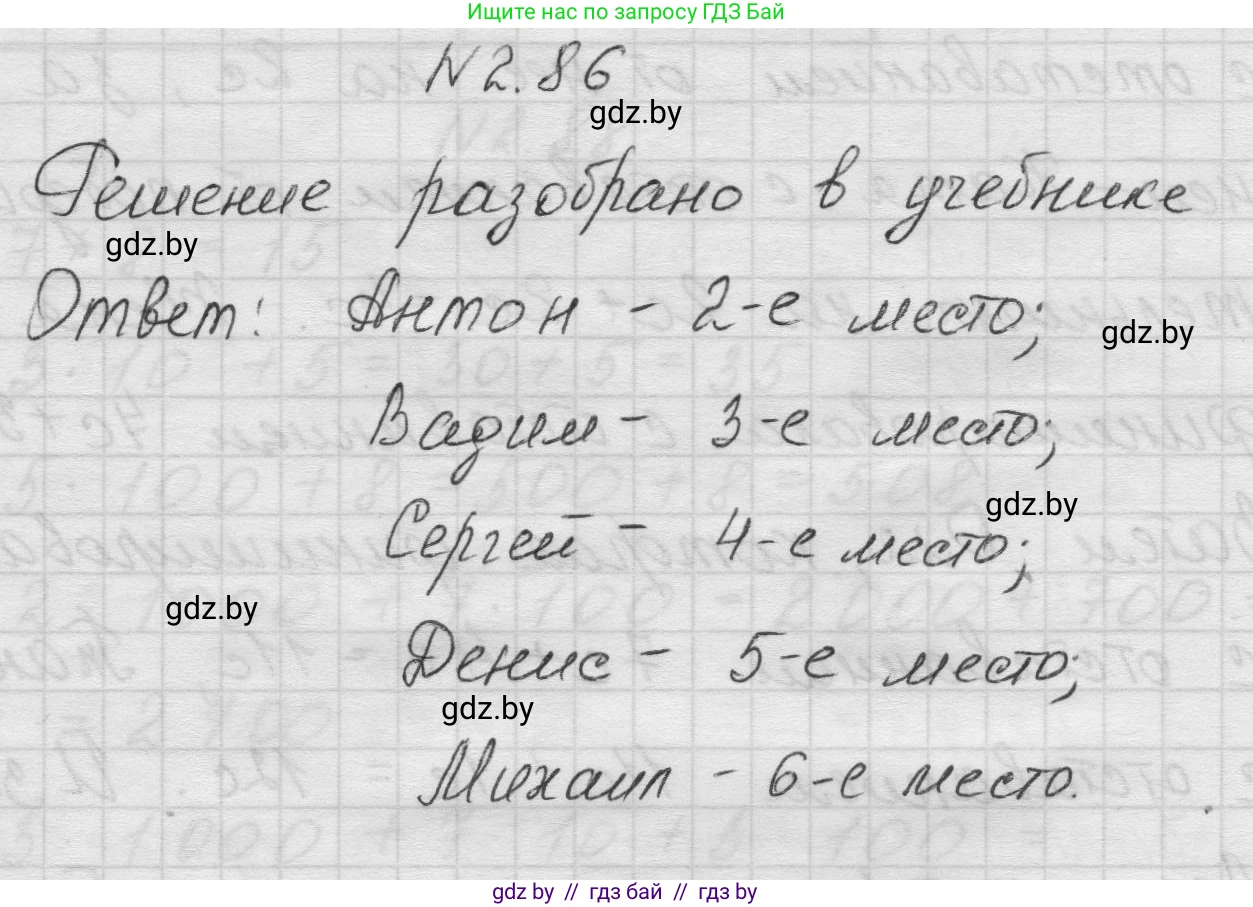 Ищите нас по запросу ГДЗ Бай
N 2.86
gdz.by
Решение разобрано в учебнике
gdz.by
Ответ: Антон - 2-е место;
gdz.by
Вадим - 3-е место;
gdz.by
Сергей - 4-е место;
gdz.by
Денис - 5-е место;
gdz.by
Михаил - 6-е место.
gdz.by // гдз бай // гдз by